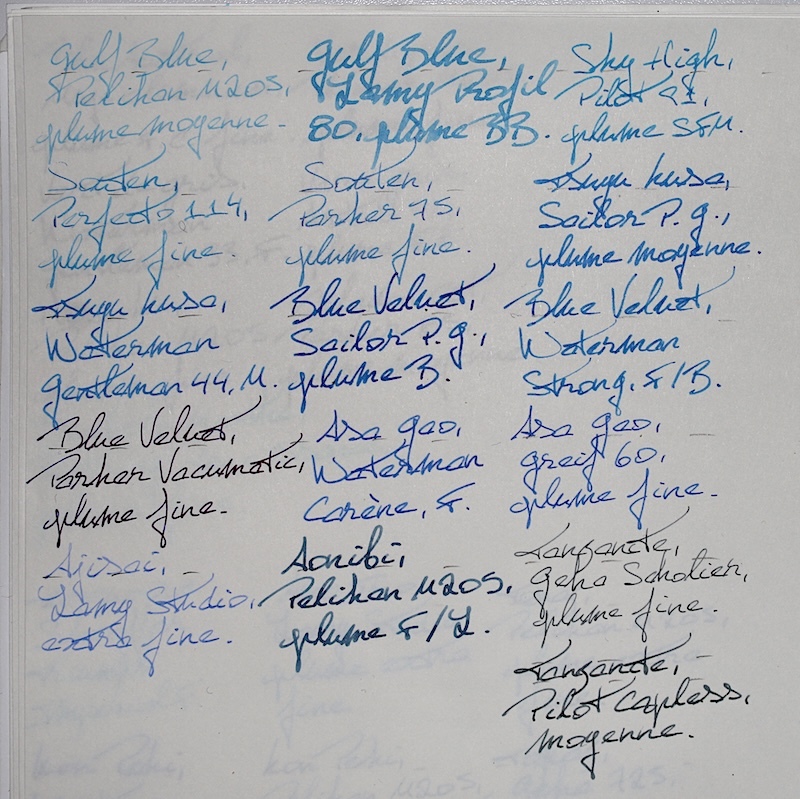 Gulf Blue,
Pelikan M205,
plume moyenne.
Gulf Blue,
Lamy Profil
80, plume BB.
Sky High,
Pilot 91,
plume SFM.
Souten,
Perfecto 114,
plume fine.
Souten,
Parker 75,
plume fine.
Tsuyu kusa,
Sailor P.g.,
plume moyenne.
Tsuyu kusa,
Waterman
Gentleman 44, M.
Blue Velvet,
Sailor P.g.,
plume B.
Blue Velvet,
Waterman
Strong, F/B.
Blue Velvet,
Parker Vacumatic,
plume fine.
Asa gao,
Waterman
Carène, F.
Asa gao,
Greif 60,
plume fine.
Ajisai,
Lamy Studio,
extra fine.
Aonibi,
Pelikan M205,
plume F/L.
Tanzanite,
Geha Schotier,
plume fine.
Tanzanite,
Pilot Capless,
moyenne.